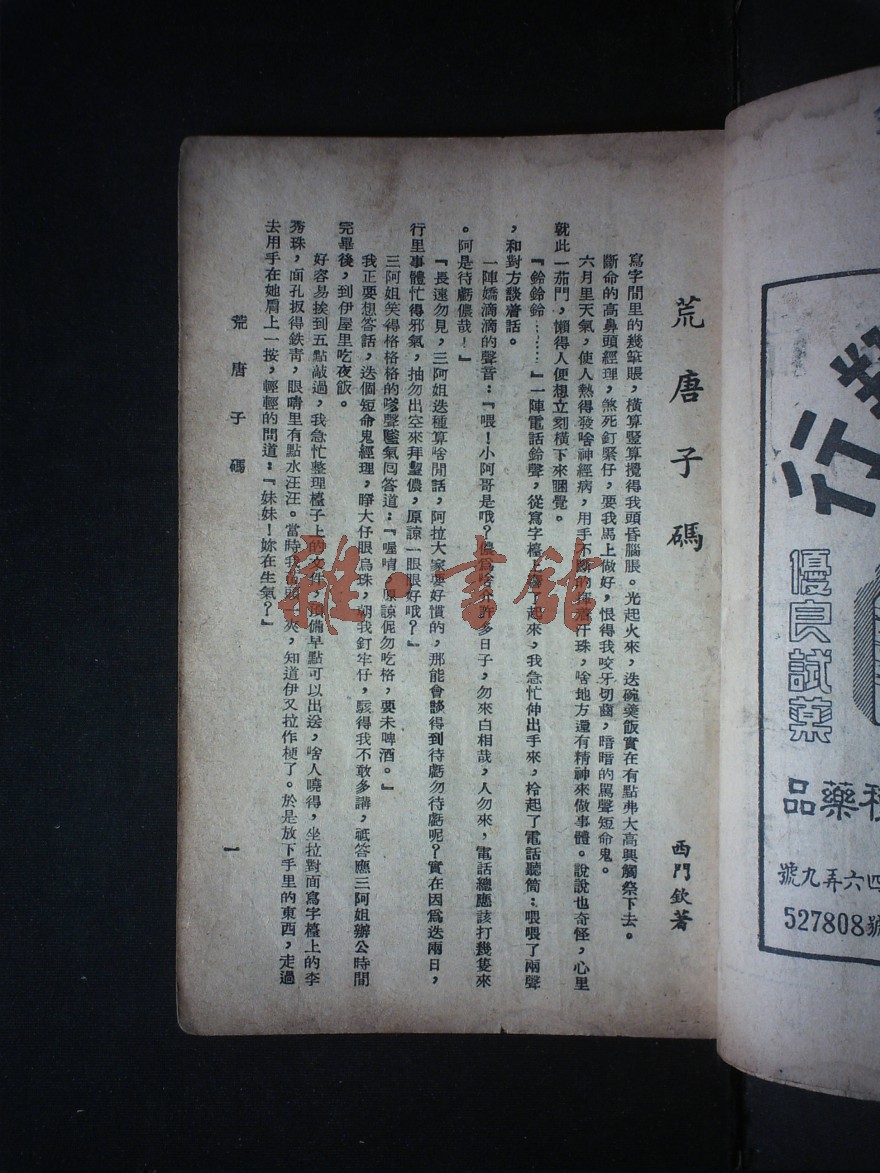 荒唐子碼
西門欽著
寫字間里的幾筆賬，橫算豎算攪得我頭昏腦脹。光起火來，迭碗羹飯實在有點弗大高興觸祭下去。
斷命的高鼻頭經理，煞死釘緊仔，要我馬上做好，恨得我咬牙切齒，暗暗的罵聲短命鬼。
六月里天氣，使人熱得發啥神經病，用手不斷的揮落汗珠，啥地方還有精神來做事體。說說也奇怪，心里
就此一茄門，懶得人便想立刻橫下來睏覺。
『鈴鈴鈴………』一陣電話鈴聲，從寫字檯上響了起來，我急忙伸出手來，柃起了電話聽筒：喂喂了兩聲
，和對方談着話。
一陣嬌滴滴的聲音：『喂！小阿哥是哦？儂爲啥介許多日子，勿來白相哉，人勿來，電話總應該打幾隻來
。阿是待虧儂哉！』
『長遠勿見，三阿姐迭種算啥閒話，阿拉大家要好慣的，那能會談得到待虧勿待虧呢？實在因爲迭兩日，
行里事體忙得邪氣，抽勿出空來拜望儂，原諒一眼眼好哦？』
三阿姐笑得格格格的嗲聲嗌氣囘答道：『喔唷，原諒倪勿吃格，要末啤酒。』
我正要想答話，迭個短命鬼經理，睜大仔眼烏珠，朝我釘牢仔，駭得我不敢多講，祗答應三阿姐辦公時間
完畢後，到伊屋里吃夜飯。
好容易挨到五點敲過，我急忙整理檯子上的文件，預備早點可以出送，啥人曉得，坐拉對面寫字檯上的李
秀珠，面孔扳得鉄靑，眼睛里有點水汪汪。當時我眉頭一夾，知道伊又拉作梗了。於是放下手里的東西，走過
去用手在她肩上一按，輕輕的問道：『妹妹！妳在生氣？』
荒唐子碼
一
雅·書館
行
優良試藥
藥品
四六弄九號
527808號